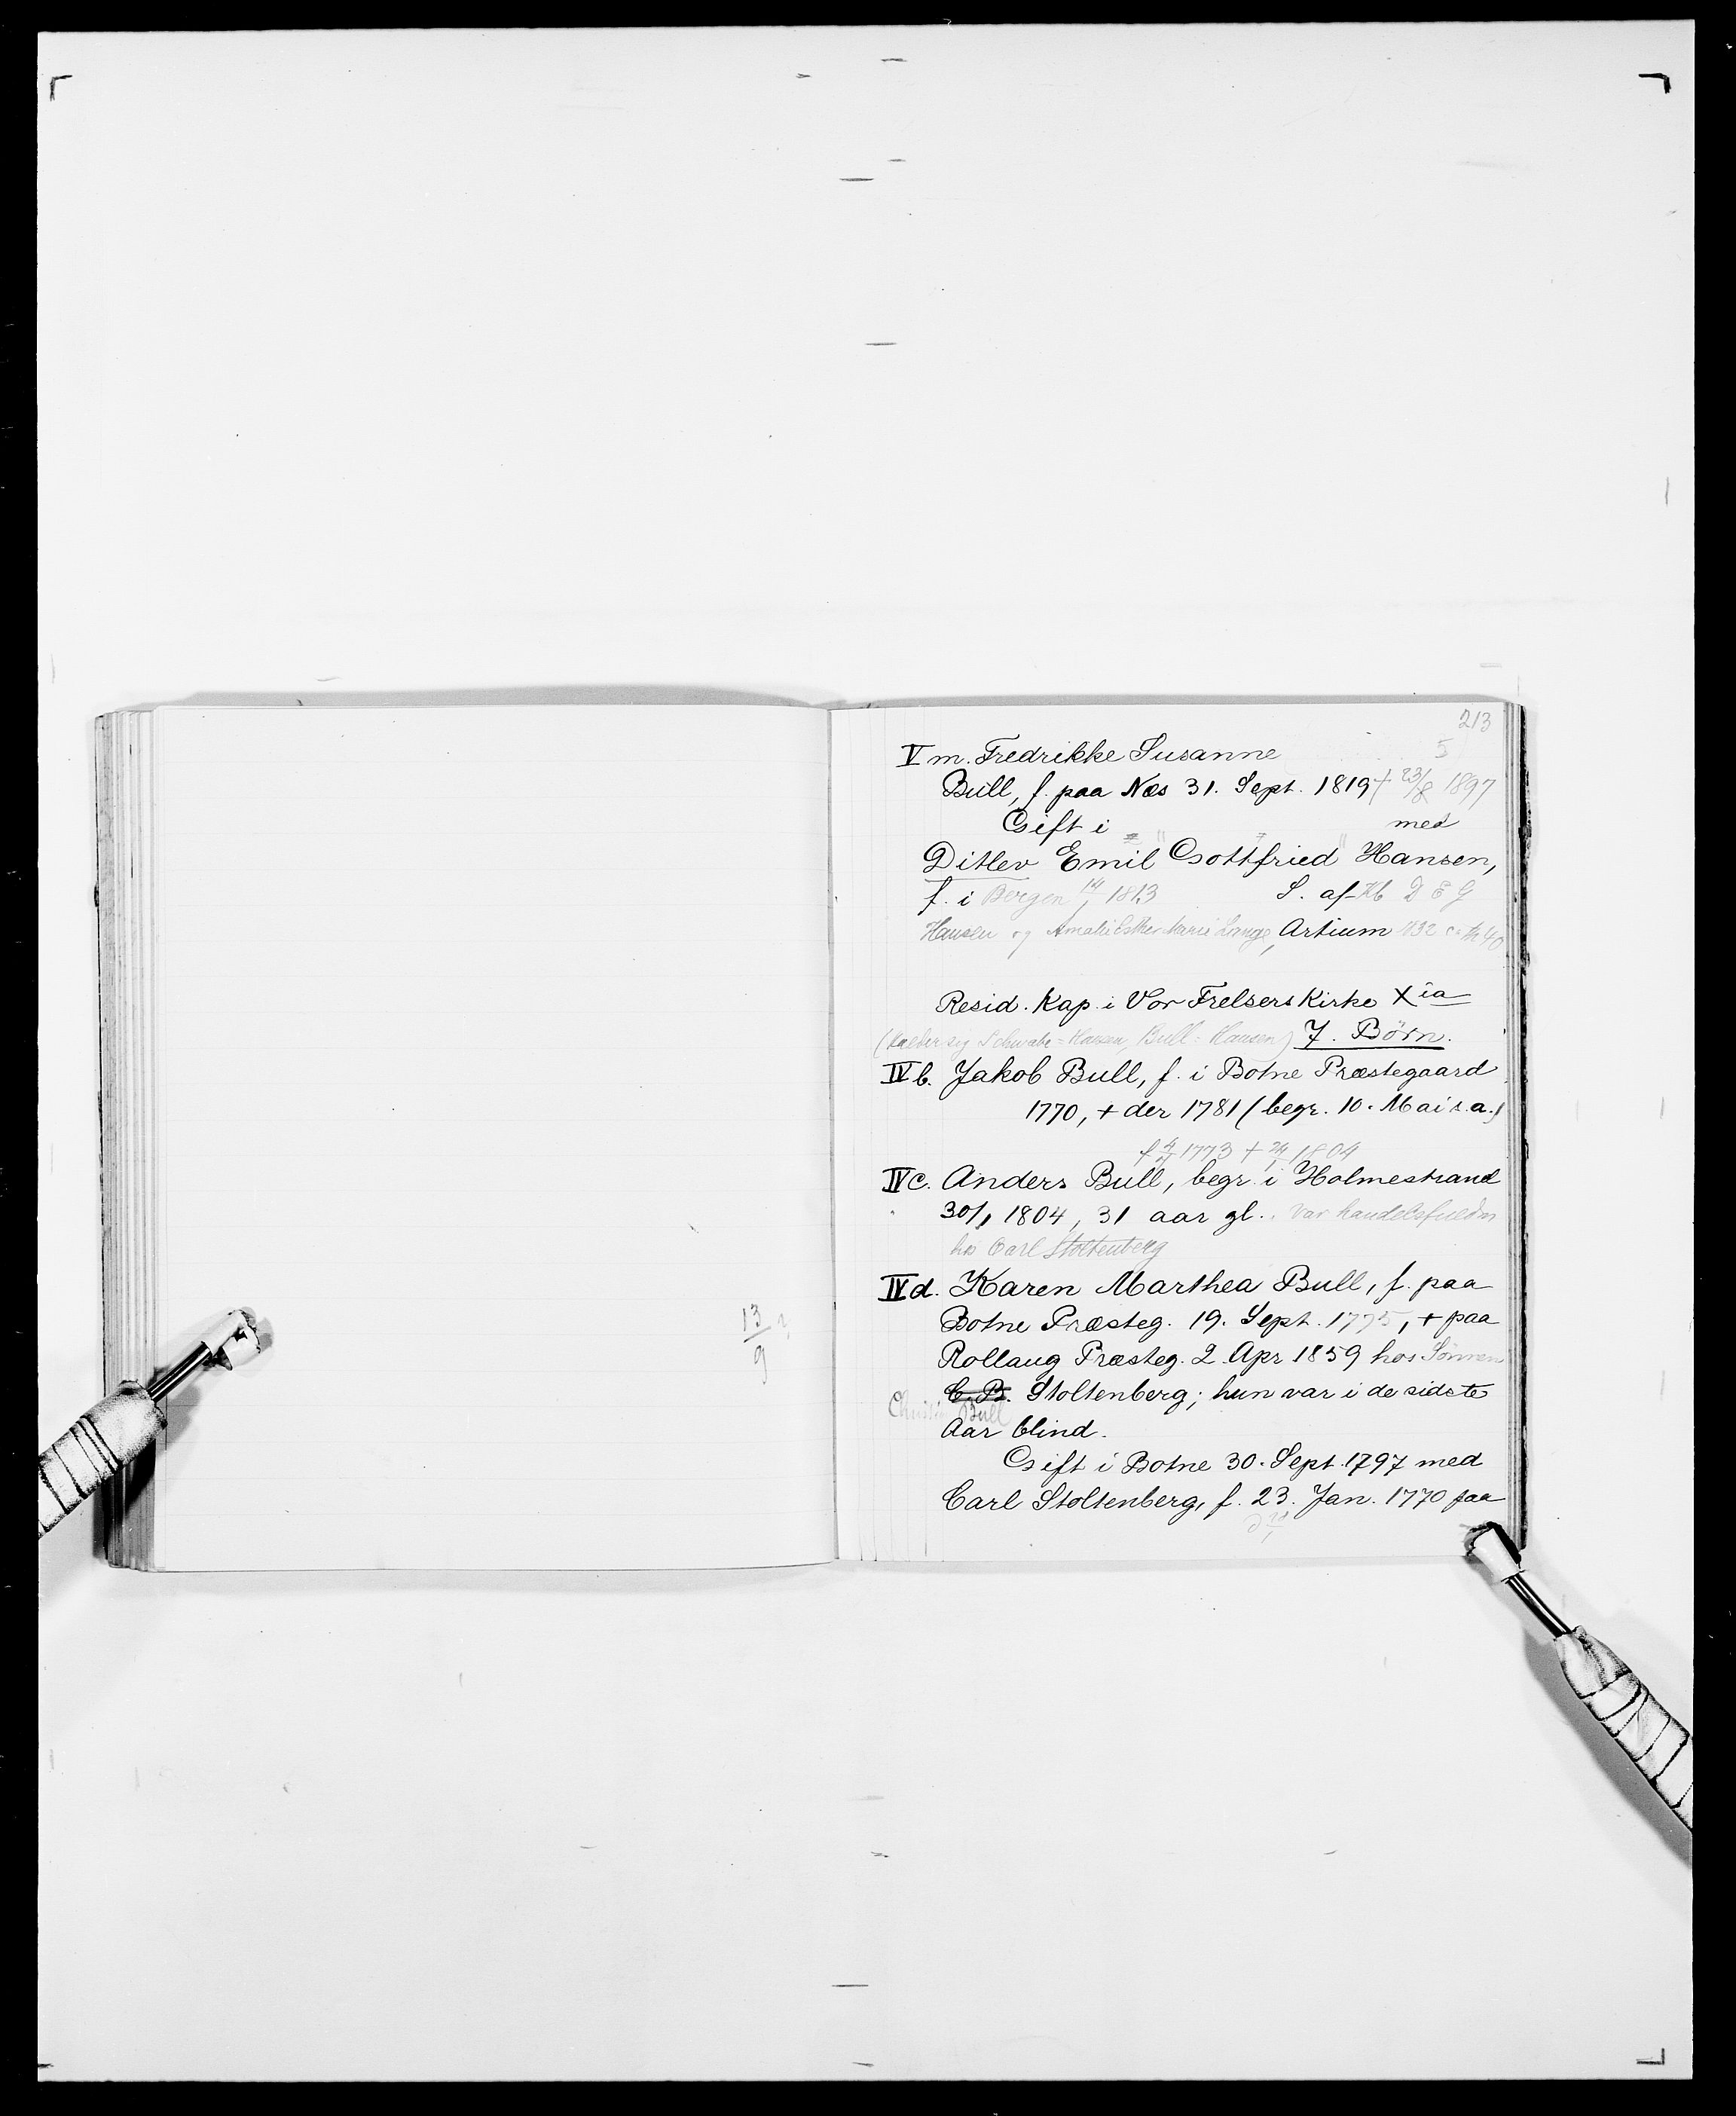 13/9 ?
213
5
V m. Fredrikke Susanne
Bull, f. paa Næs 31. Sept. 1819 + 23/8 1897
Gift i med
Ditlev Emil Gottfried Hansen,
f. i Bergen 14/ 1813 S. af Kb D E G
Hansen og Amalie Esther Marie Lange, Artium 1832
Resid. Kap. i Vor Frelsers Kirke X ia
(kalder sig Schwabe-Hansen, Bull-Hansen) 7. Børn.
IV b. Jakob Bull, f. i Botne Præstegaard
1770, + der 1781 (begr. 10. Mai s.a.)
f 4/4 1773 + 24/1 1804
IV c. Anders Bull, begr. i Holmestrand
30/1 1804, 31 aar gl. Var handelsfuldm
hos Carl Stoltenberg
IV d. Karen Marthea Bull, f. paa
Botne Præsteg. 19. Sept. 1775, + paa
Rollaug Præsteg. 2. Apr 1859 hos Sønnen
C. B. Stoltenberg; hun var i de sidste
Bull
Aar blind.
Gift i Botne 30. Sept. 1797 med
Carl Stoltenberg, f. 23. Jan. 1770 paa